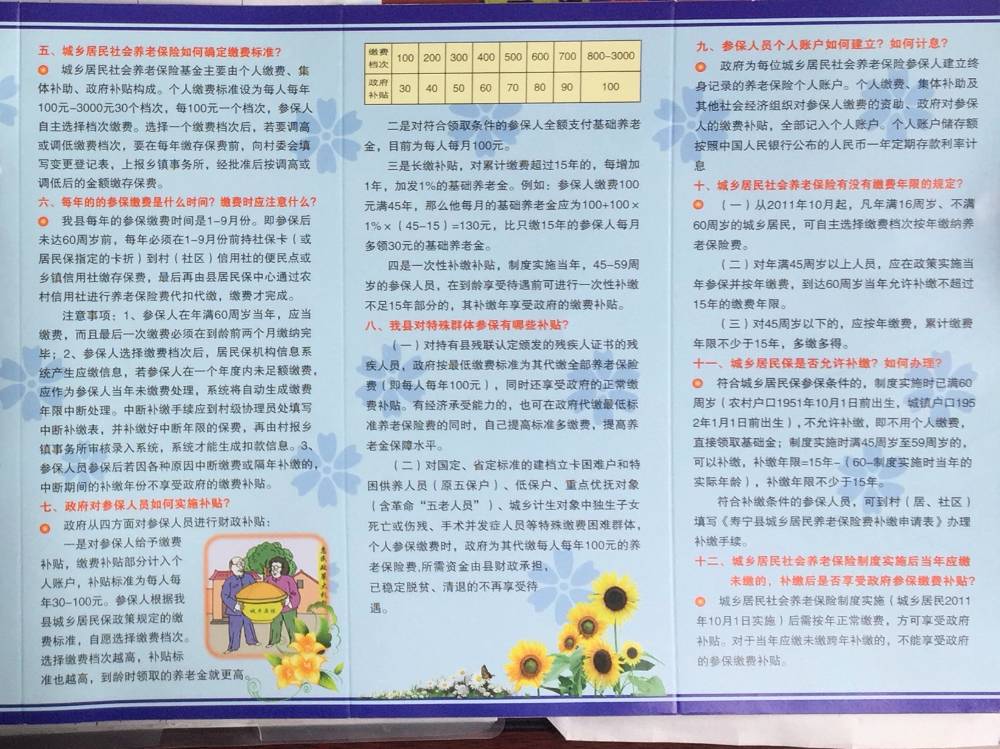 五、城乡居民社会养老保险如何确定缴费标准?
城乡居民社会养老保险基金主要由个人缴费、集
体补助、政府补贴构成。个人缴费标准设为每人每年
100元-3000元30个档次，每100元一个档次，参保人
自主选择档次缴费。选择一个缴费档次后，若要调高
或调低缴费档次，要在每年缴存保费前，向村委会填
写变更登记表，上报乡镇事务所，经批准后按调高或
调低后的金额缴存保费。
六、每年的的参保缴费是什么时间？缴费时应注意什么?
我县每年的参保缴费时间是1-9月份。即参保后
未达60周岁前，每年必须在1-9月份前持社保卡（或
居民保指定的卡折）到村（社区）信用社的便民点或
乡镇信用社缴存保费，最后再由县居民保中心通过农
村信用社进行养老保险费代扣代缴，缴费才完成。
注意事项：1、参保人在年满60周岁当年，应当
缴费，而且最后一次缴费必须在到龄前两个月缴纳完
毕；2、参保人选择缴费档次后，居民保机构信息系
统产生应缴信息，若参保人在一个年度内未足额缴费，
应作为参保人当年未缴费处理，系统将自动生成缴费
年限中断处理。中断补缴手续应到村级协理员处填写
中断补缴表，并补缴好中断年限的保费，再由村报乡
镇事务所审核录入系统，系统才能生成扣款信息。3、
参保人员参保后若因各种原因中断缴费或隔年补缴的，
中断期间的补缴年份不享受政府的缴费补贴。
七、政府对参保人员如何实施补贴?
政府从四方面对参保人员进行财政补贴：
一是对参保人给予缴费
补贴，缴费补贴部分计入个
人账户，补贴标准为每人每
年30-100元。参保人根据我
县城乡居民保政策规定的缴
费标准，自愿选择缴费档次。
选择缴费档次越高，补贴标
准也越高，到龄时领取的养老金就更高。
缴费档次 100 200 300 400 500 600 700 800-3000
政府补贴 30 40 50 60 70 80 90 100
二是对符合领取条件的参保人全额支付基础养老
金，目前为每人每月100元。
三是长缴补贴，对累计缴费超过15年的，每增加
1年，加发1%的基础养老金。例如：参保人缴费100
元满45年，那么他每月的基础养老金应为100+100×
1%×（45-15）=130元，比只缴15年的参保人每月
多领30元的基础养老金。
四是一次性补缴补贴，制度实施当年，45-59周
岁的参保人员，在到龄享受待遇前可进行一次性补缴
不足15年部分的，其补缴年享受政府的缴费补贴。
八、我县对特殊群体参保有哪些补贴?
（一）对持有县残联认定颁发的残疾人证书的残
疾人员，政府按最低缴费标准为其代缴全部养老保险
费（即每人每年100元），同时还享受政府的正常缴
费补贴。有经济承受能力的，也可在政府代缴最低标
准养老保险费的同时，自己提高标准多缴费，提高养
老金保障水平。
（二）对国定、省定标准的建档立卡困难户和特
困供养人员（原五保户）、低保户、重点优抚对象
（含革命“五老人员”）、城乡计生对象中独生子女
死亡或伤残、手术并发症人员等特殊缴费困难群体，
个人参保缴费时，政府为其代缴每人每年100元的养
老保险费,所需资金由县财政承担，
已稳定脱贫、清退的不再享受待
遇。
九、参保人员个人账户如何建立？如何计息?
政府为每位城乡居民社会养老保险参保人建立终
身记录的养老保险个人账户。个人缴费、集体补助及
其他社会经济组织对参保人缴费的资助、政府对参保
人的缴费补贴，全部记入个人账户。个人账户储存额
按照中国人民银行公布的人民币一年定期存款利率计
息
十、城乡居民社会养老保险有没有缴费年限的规定?
（一）从2011年10月起，凡年满16周岁、不满
60周岁的城乡居民，可自主选择缴费档次按年缴纳养
老保险费。
（二）对年满45周岁以上人员，应在政策实施当
年参保并按年缴费，到达60周岁当年允许补缴不超过
15年的缴费年限。
（三）对45周岁以下的，应按年缴费，累计缴费
年限不少于15年，多缴多得。
十一、城乡居民保是否允许补缴？如何办理?
符合城乡居民保参保条件的，制度实施时已满60
周岁（农村户口1951年10月1日前出生，城镇户口195
2年1月1日前出生），不允许补缴，即不用个人缴费，
直接领取基础金；制度实施时满45周岁至59周岁的，
可以补缴，补缴年限=15年-（60-制度实施时当年的
实际年龄），补缴年限不少于15年。
符合补缴条件的参保人员，可到村（居、社区）
填写《寿宁县城乡居民养老保险费补缴申请表》办理
补缴手续。
十二、城乡居民社会养老保险制度实施后当年应缴
未缴的，补缴后是否享受政府参保缴费补贴?
城乡居民社会养老保险制度实施（城乡居民2011
年10月1日实施）后需按年正常缴费，方可享受政府
补贴。对于当年应缴未缴跨年补缴的，不能享受政府
的参保缴费补贴。